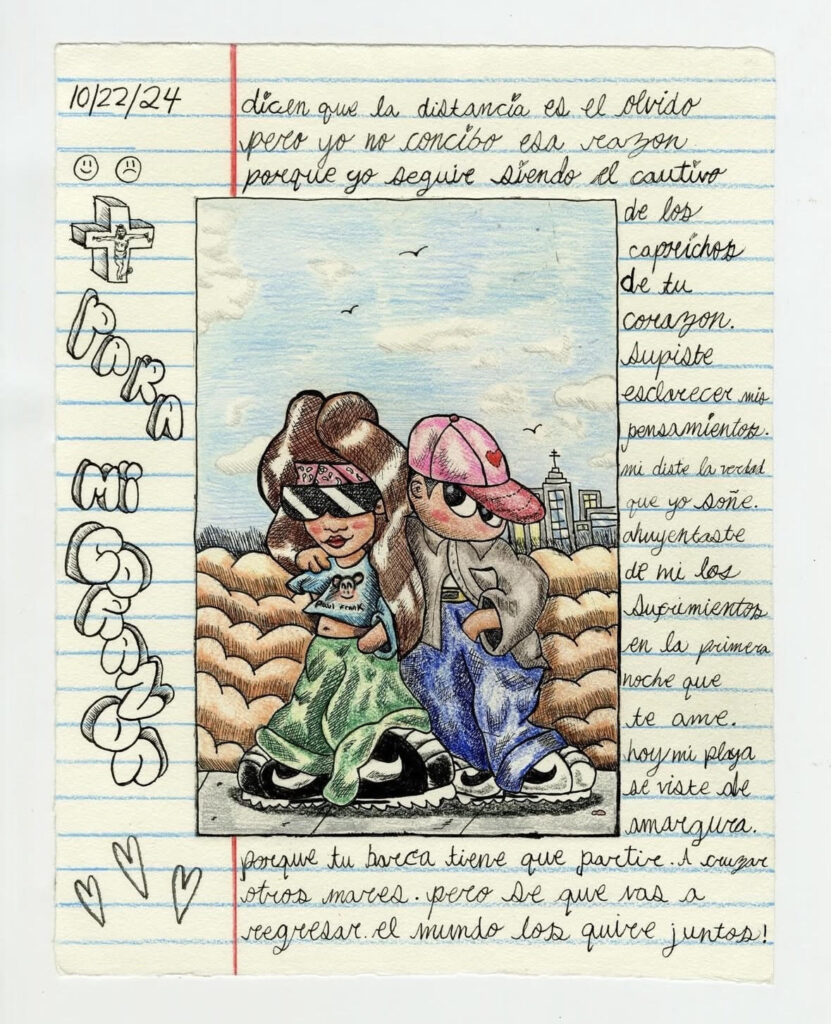 10/22/24
dicen que la distancia es el olvido
pero yo no concibo esa razon
porque yo seguire siendo el cautivo
de los
caprichos
de tu
corazon.
supiste
esclarecer mis
pensamientos.
mi diste la verdad
que yo soñe.
ahuyentaste
de mi los
sufrimientos
en la primera
noche que
te ame.
hoy mi playa
se viste de
amargura.
porque tu barca tiene que partir. A cruzar
otros mares. pero se que vas a
regresar. el mundo los quire juntos!
PARA
MI
Paul Frank